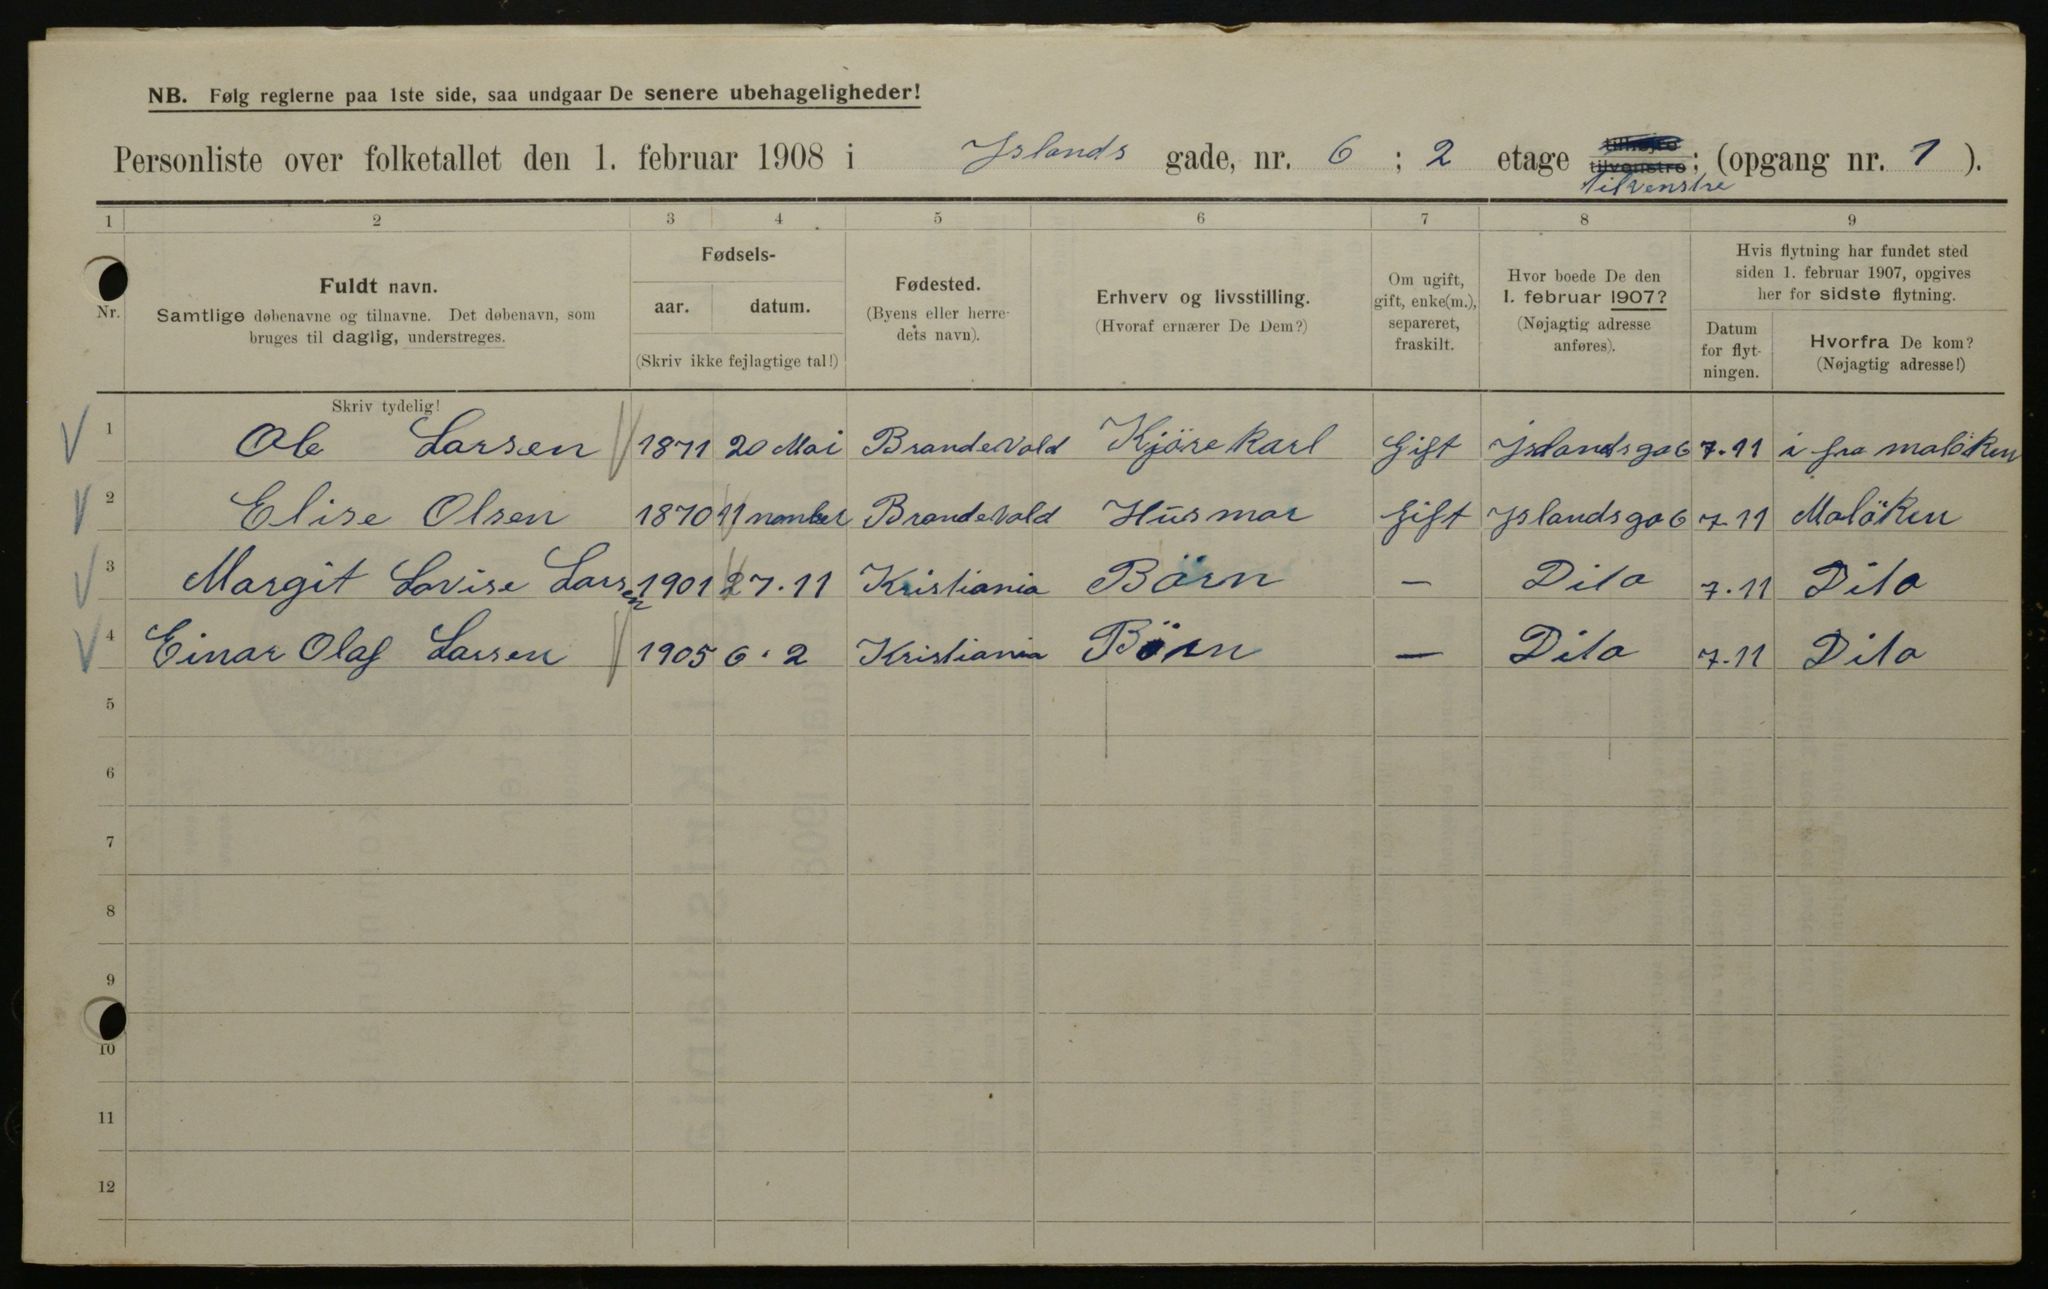 NB. Følg reglerne paa 1ste side, saa undgaar De senere ubehageligheder!
Personliste over folketallet den 1. februar 1908 i Yslands gade, nr. 6 ; 2 etage tilhøjre tilvenstre ; (opgang nr. 1 ).
tilvenstre
1 2 3 4 5 6 7 8 9
Nr.
Fuldt navn.
Samtlige døbenavne og tilnavne. Det døbenavn, som
bruges til daglig, understreges.
Skriv tydelig!
Fødsels-
aar. datum.
(Skriv ikke fejlagtige tal!)
Fødested.
(Byens eller herre-
dets navn).
Erhverv og livsstilling.
(Hvoraf ernærer De Dem?)
Om ugift,
gift, enke(m.),
separeret,
fraskilt.
Hvor boede De den
1. februar 1907?
(Nøjagtig adresse
anføres).
Hvis flytning har fundet sted
siden 1. februar 1907, opgives
her for sidste flytning.
Datum
for flyt-
ningen.
Hvorfra De kom?
(Nøjagtig adresse!)
1 Ole Larsen 1871 20 Mai Brandevold Kjöre Karl Gift Yslandsga 6 7.11 i fra malöken
2 Elise Olsen 1870 11 Brandevold Husmor Gift Yslandsga 6 7-11 Malöken
3 Margit Lovise Larsen 1901 27.11 Kristiania Börn — Dito 7.11 Dito
4 Einar Olaf Larsen 1905 6.2 Kristiania Börn — Dito 7-11 Dito
5
6
7
8
9
10
11
12